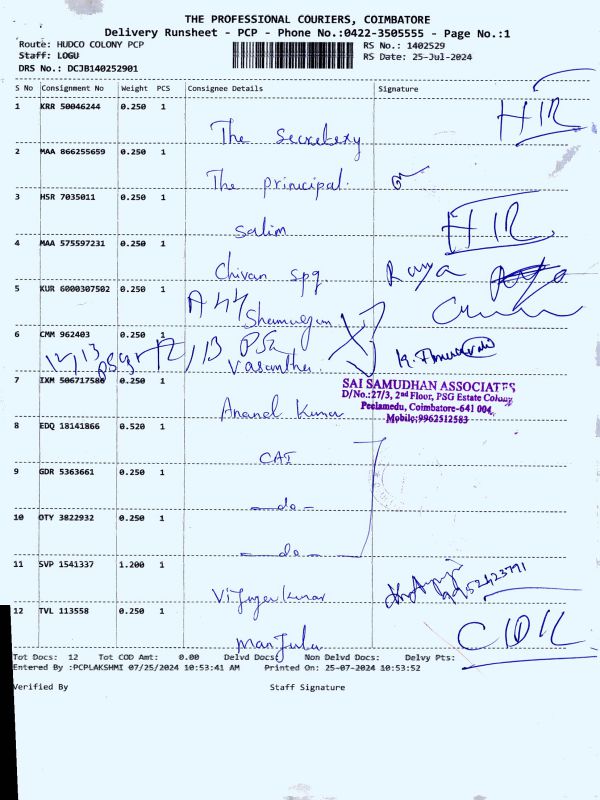 THE PROFESSIONAL COURIERS, COIMBATORE
Delivery Runsheet - PCP - Phone No.:0422-3505555 - Page No.:1
Route: HUDCO COLONY PCP RS No.: 1402529
Staff: LOGU RS Date: 25-Jul-2024
DRS No.: DCJB140252901
S No Consignment No Weight PCS Consignee Details Signature
1 KRR 50046244 0.250 1
The secretery
2 MAA 866255659 0.250 1
The principal.
3 HSR 7035011 0.250 1
Salim
4 MAA 575597231 0.250 1
Chivan spg
5 KUR 6000307502 0.250 1
A 44
Shamugam
6 CMM 962403 0.250 1
12/13 PSG
Vasantha
7 IXM 506717580 0.250 1
SAI SAMUDHAN ASSOCIATES
D/No.:27/3, 2nd Floor, PSG Estate Colony
Peelamedu, Coimbatore-641 004.
Mobile:9962512583
Anand Kumar
8 EDQ 18141866 0.520 1
CAI
9 GDR 5363661 0.250 1
-do-
10 OTY 3822932 0.250 1
-do-
11 SVP 1541337 1.200 1
12 TVL 113558 0.250 1
Manjula
Tot Docs: 12 Tot COD Amt: 0.00 Delvd Docs: Non Delvd Docs: Delvy Pts:
Entered By :PCPLAKSHMI 07/25/2024 10:53:41 AM Printed On: 25-07-2024 10:53:52
Verified By Staff Signature